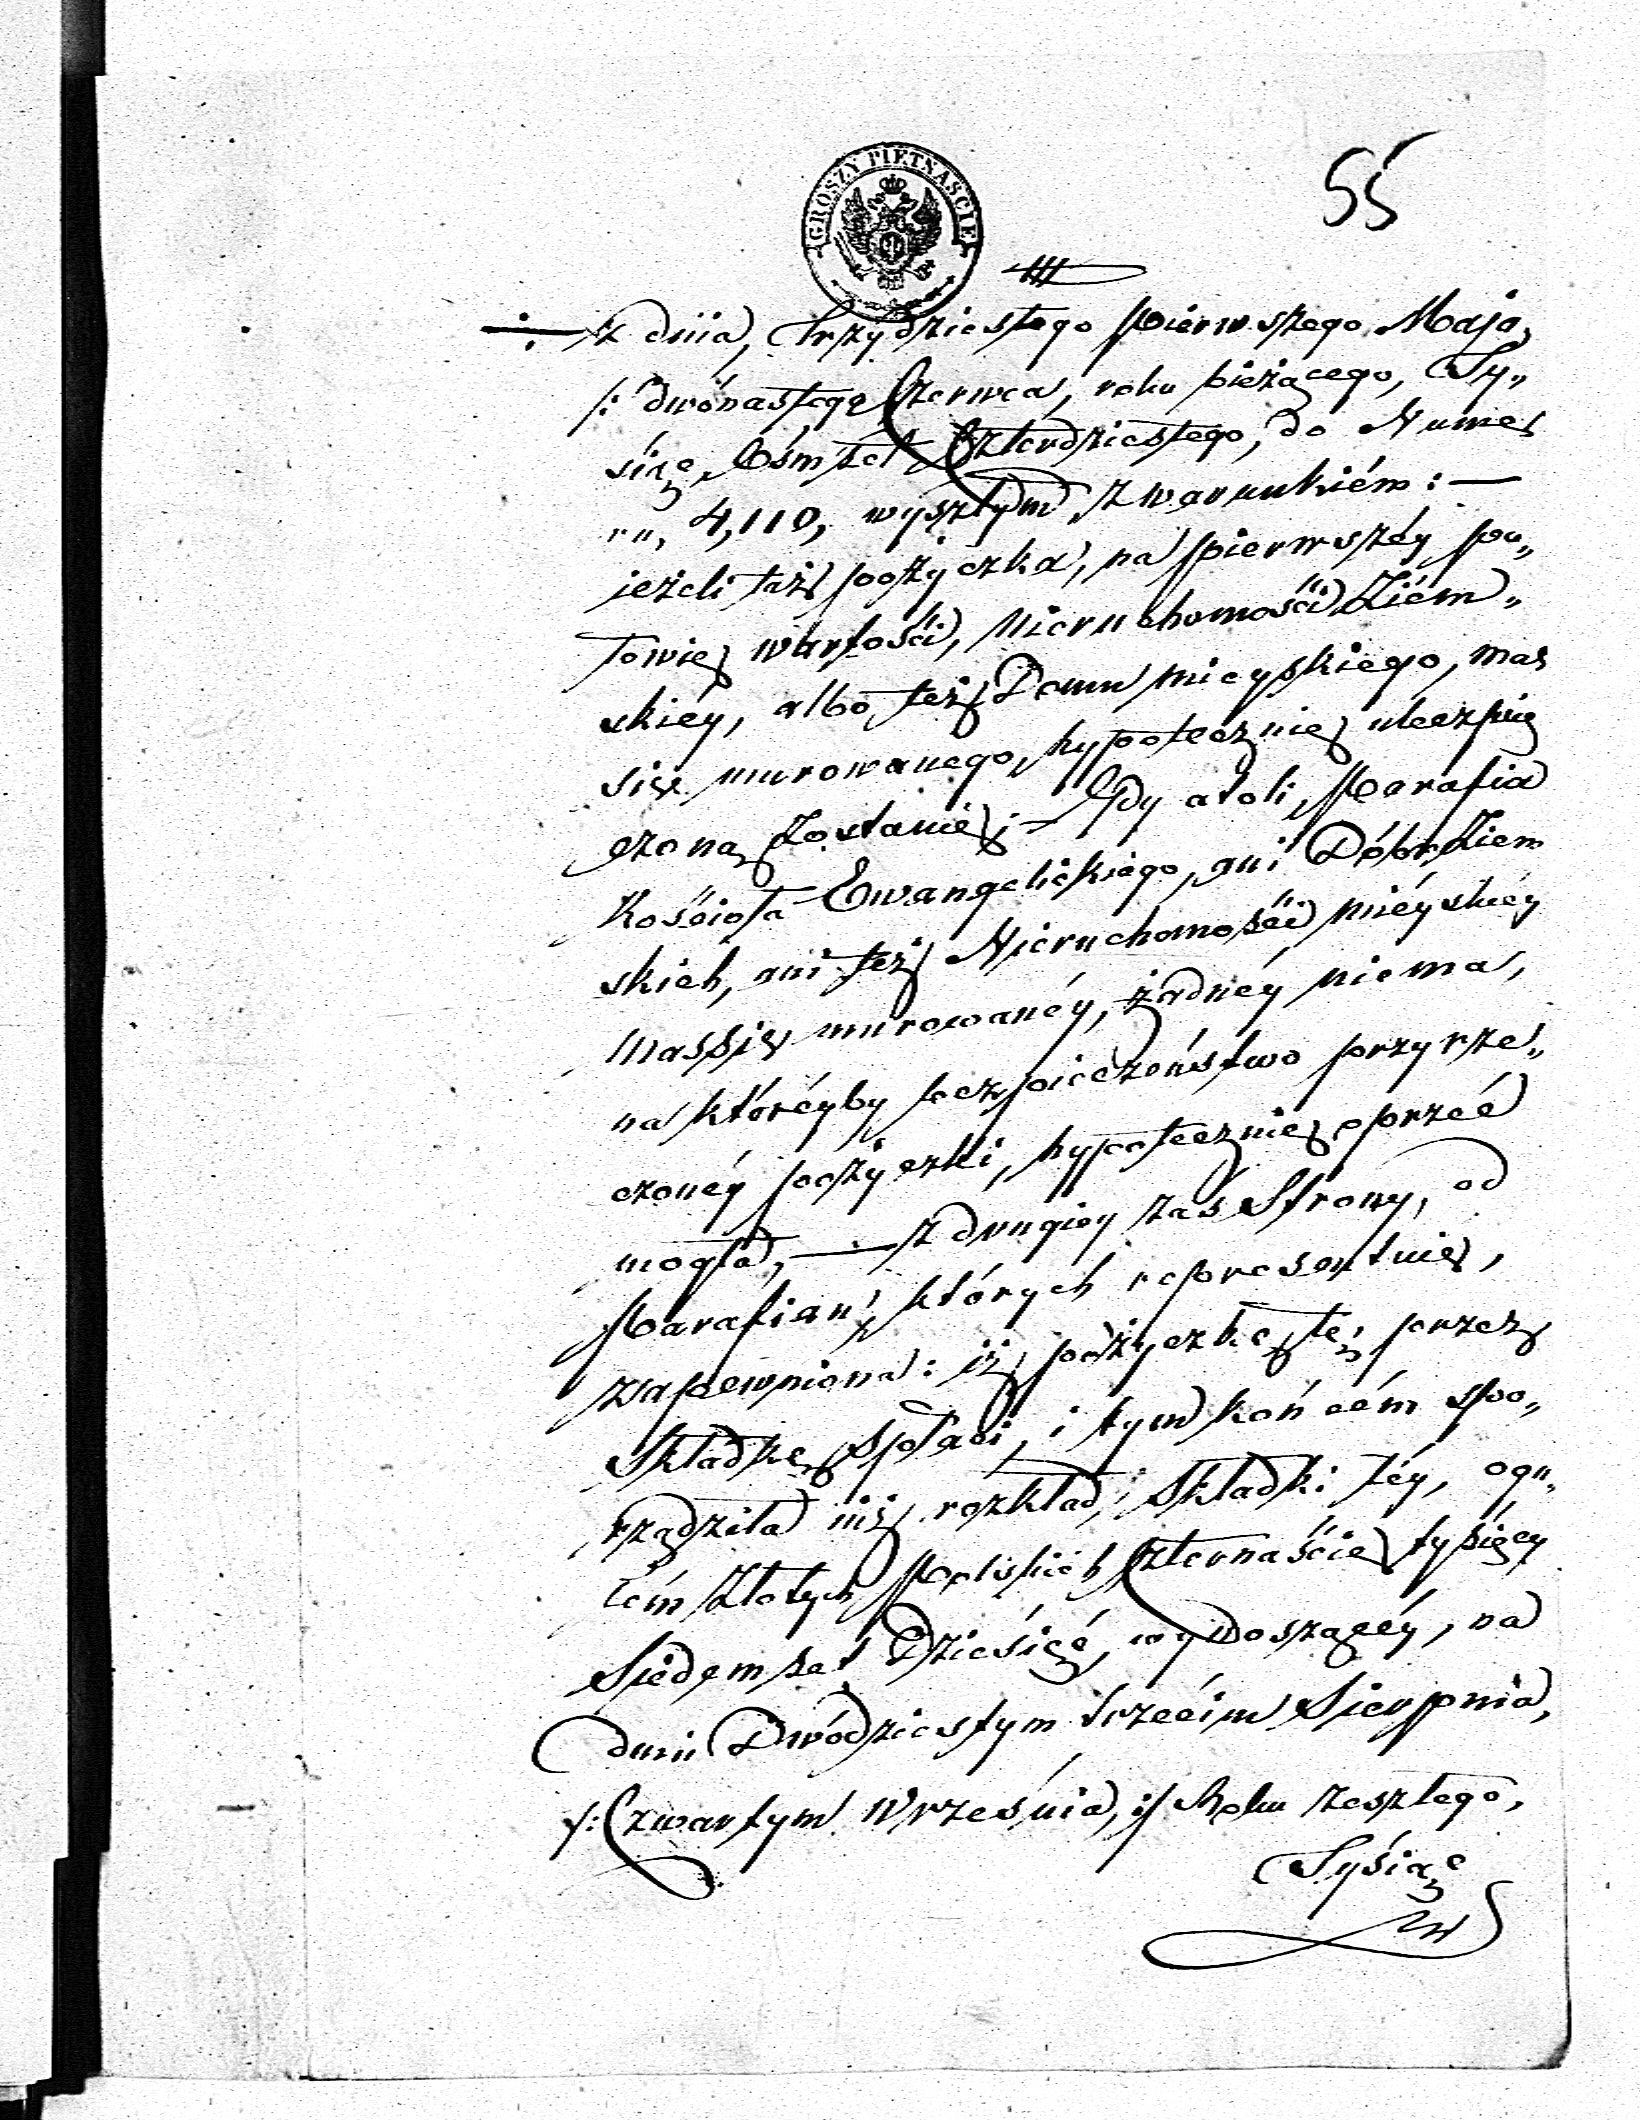 55
GROSZY PIETNAŚCIE
III
z dnia, Trzydziestego Pierwszego Maja,
/: dwónastego Czerwca, roku bieżącego, Ty„
siąc Ośmset Czterdziestego, do Nume„
ru, 4,110, wyszłym, z warunkiém: —
jeżeli taż pożyczka, na pierwszéy po„
łowie wartości, Nieruchomości Ziém„
skiéy, albo też Domu mieyskiego, mas
siv murowanego, hypotecznie ubezpie
czoną zostanie; — Gdy atoli, Parafia
Kościoła Ewangelickiego, ani Dóbr Ziem
skich, ani też Nieruchomości miéyskiéy
massiv murowanéy, żadnéy niema,
na któréyby bezpieczeństwo przyrze„
czonéy pożyczki, hypotecznie oprzéć
mogła, — z drugiey zaś Strony, od
Parafian, których reprezentuie,
zapewniona: iż pożyczkę tę, przez
Składkę spłaci, i tym końcém spo„
rządziła iuż rozkład, Składki téy, ogu„
łém Złotych Polskich Czternaście tysięcy
Siedemset Dziesięć, wynoszącéy, na
dniu Dwódziestym trzecim Sierpnia,
/: Czwartym Września, :/ Roku zeszłego,
Tysiąc